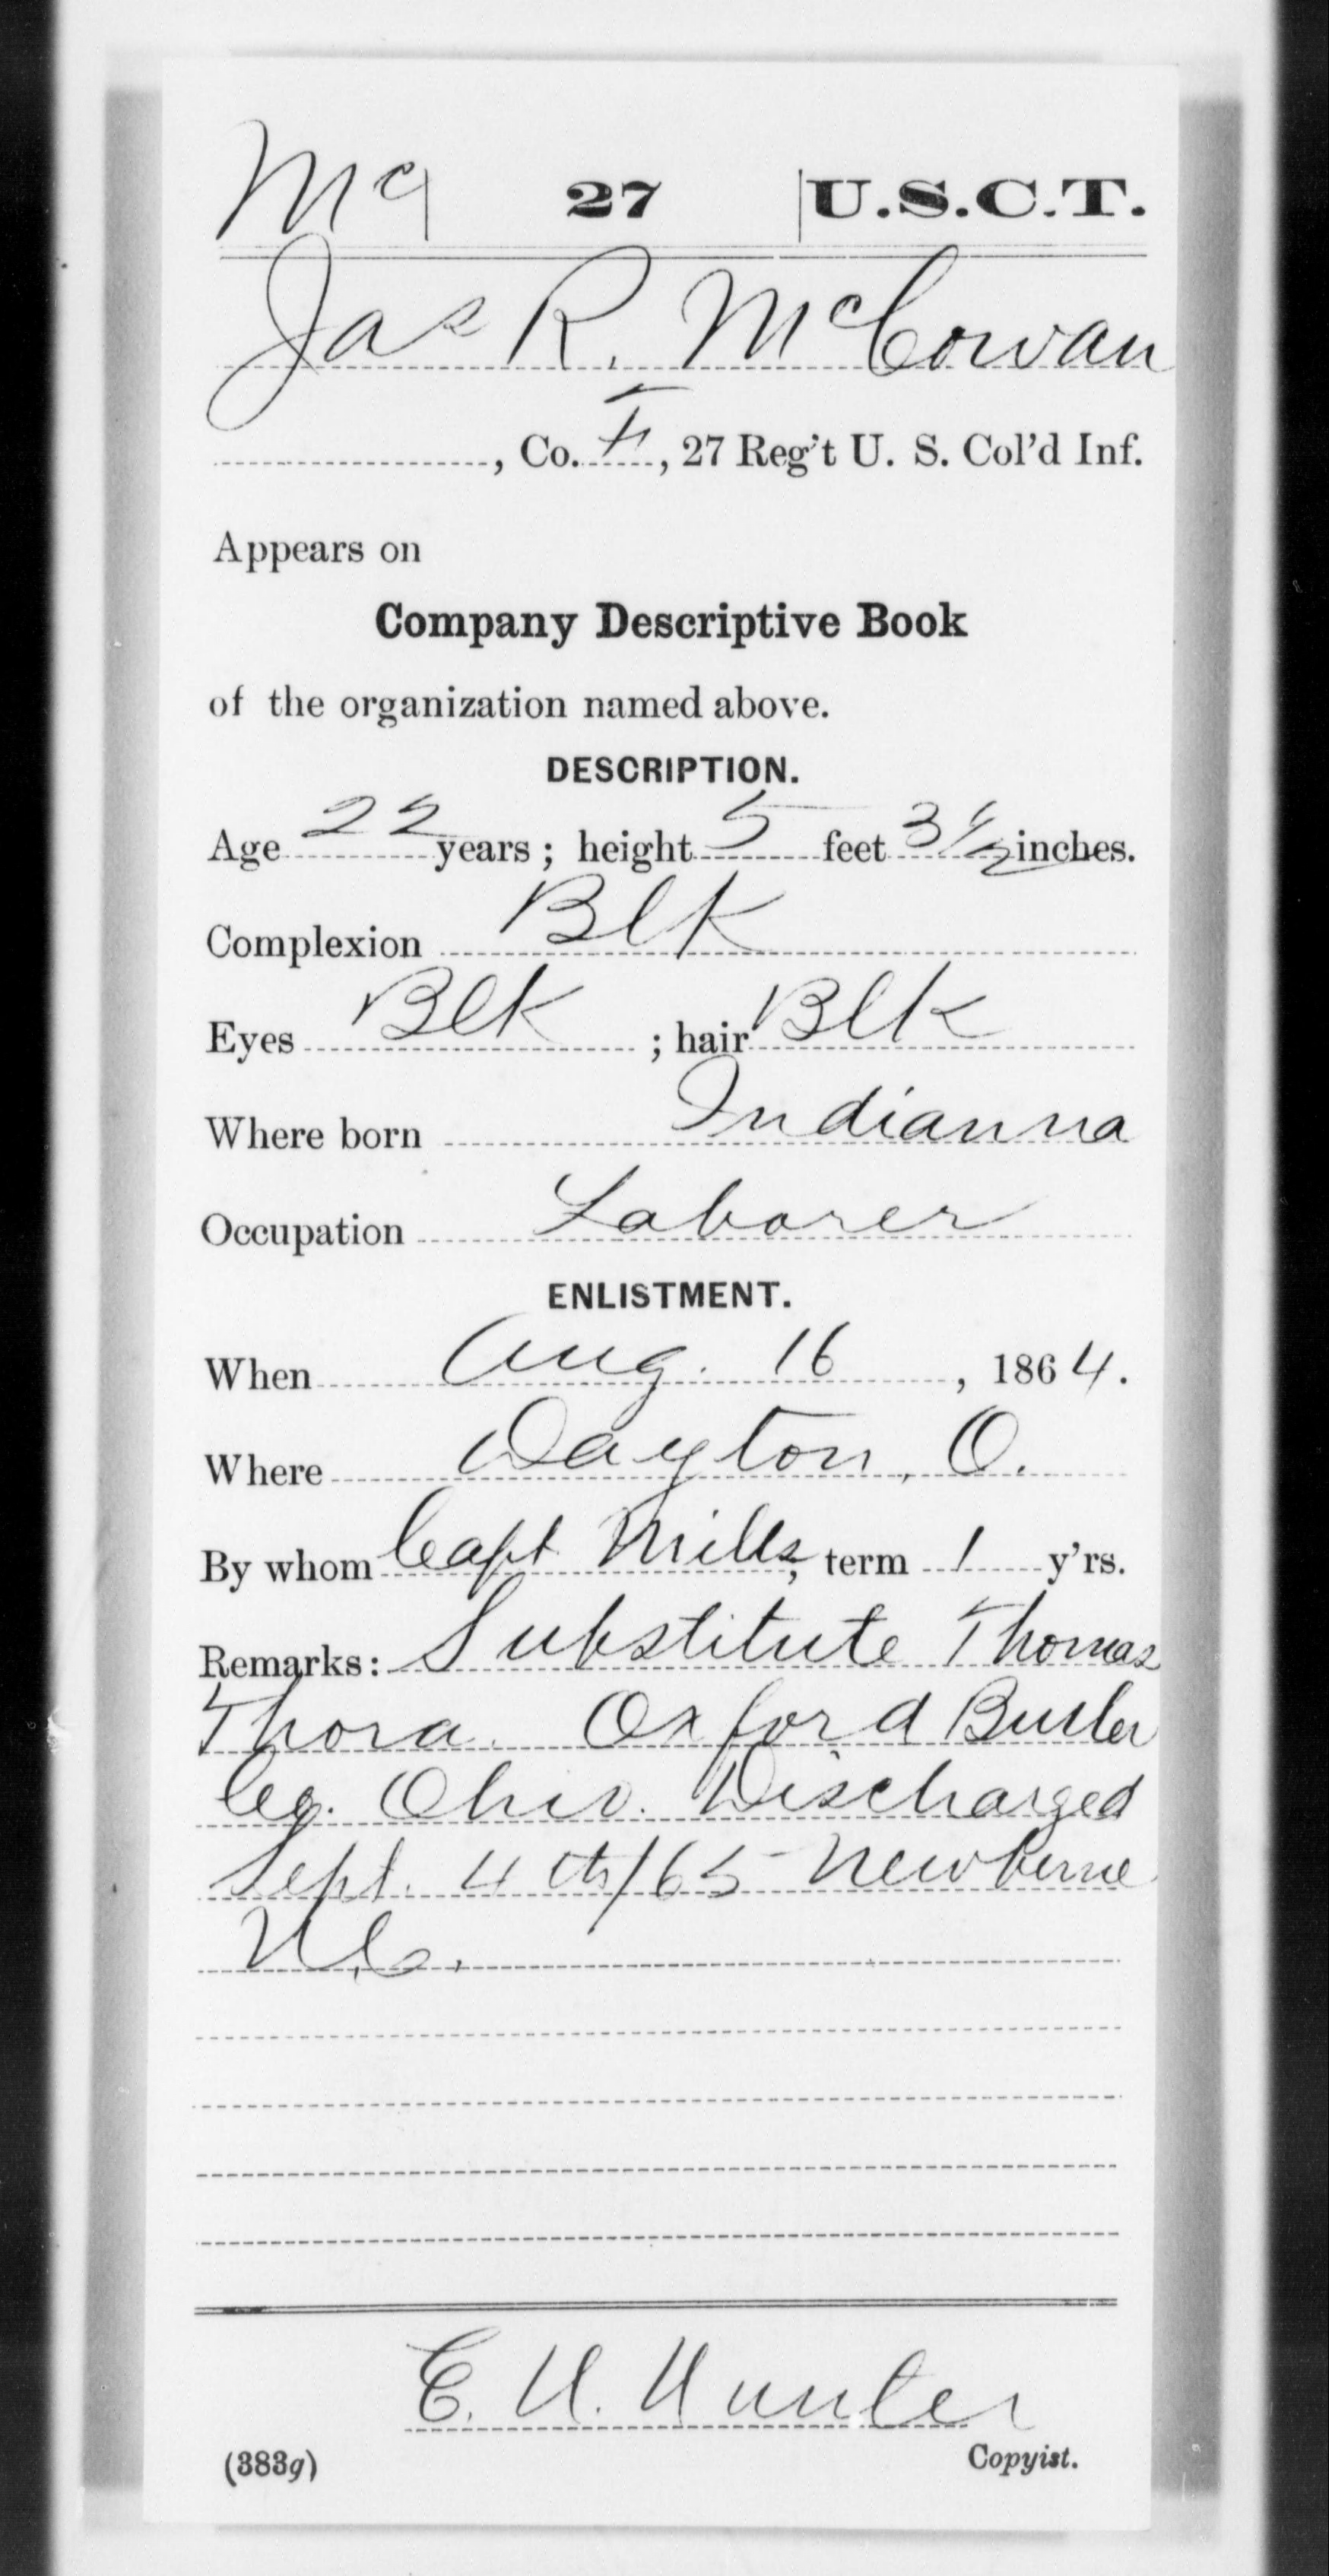 Mc 27 U.S.C.T.
Jas R. McCowan
, Co. F, 27 Reg't U. S. Col'd Inf.
Appears on
Company Descriptive Book
of the organization named above.
DESCRIPTION.
Age 22 years; height 5 feet 3 1/2 inches.
Complexion Blk
Eyes Blk; hair Blk
Where born Indianna
Occupation Laborer
ENLISTMENT.
When Aug. 16, 1864.
Where Dayton, O.
By whom Capt Mills, term 1 y'rs.
Remarks: Substitute Thomas
Thora. Oxford Butler
Co. Ohio. Discharged
Sept. 4th/65 Newberne
N.C.
Hunter
(383g) Copyist.